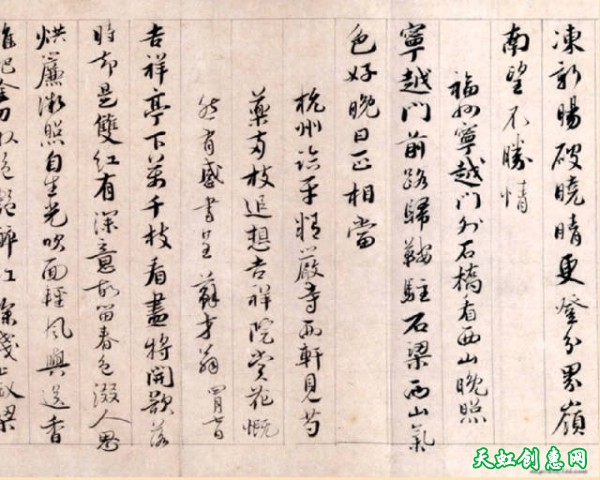 凍新陽破曉晴更登分界嶺
南望不勝情
福州寧越門外石橋看西山晚照
寧越門前路歸鞍駐石梁西山氣
色好晚日正相當
杭州臨平精嚴寺西軒見芍
藥兩枝追想吉祥院賞花慨
然有感書呈 蘇才翁
吉祥亭下萬千枝看盡將開欲落
時却是雙紅有深意故留春色綴人思
烘簾微照自生光吹面輕風與送香
天虹创惠网